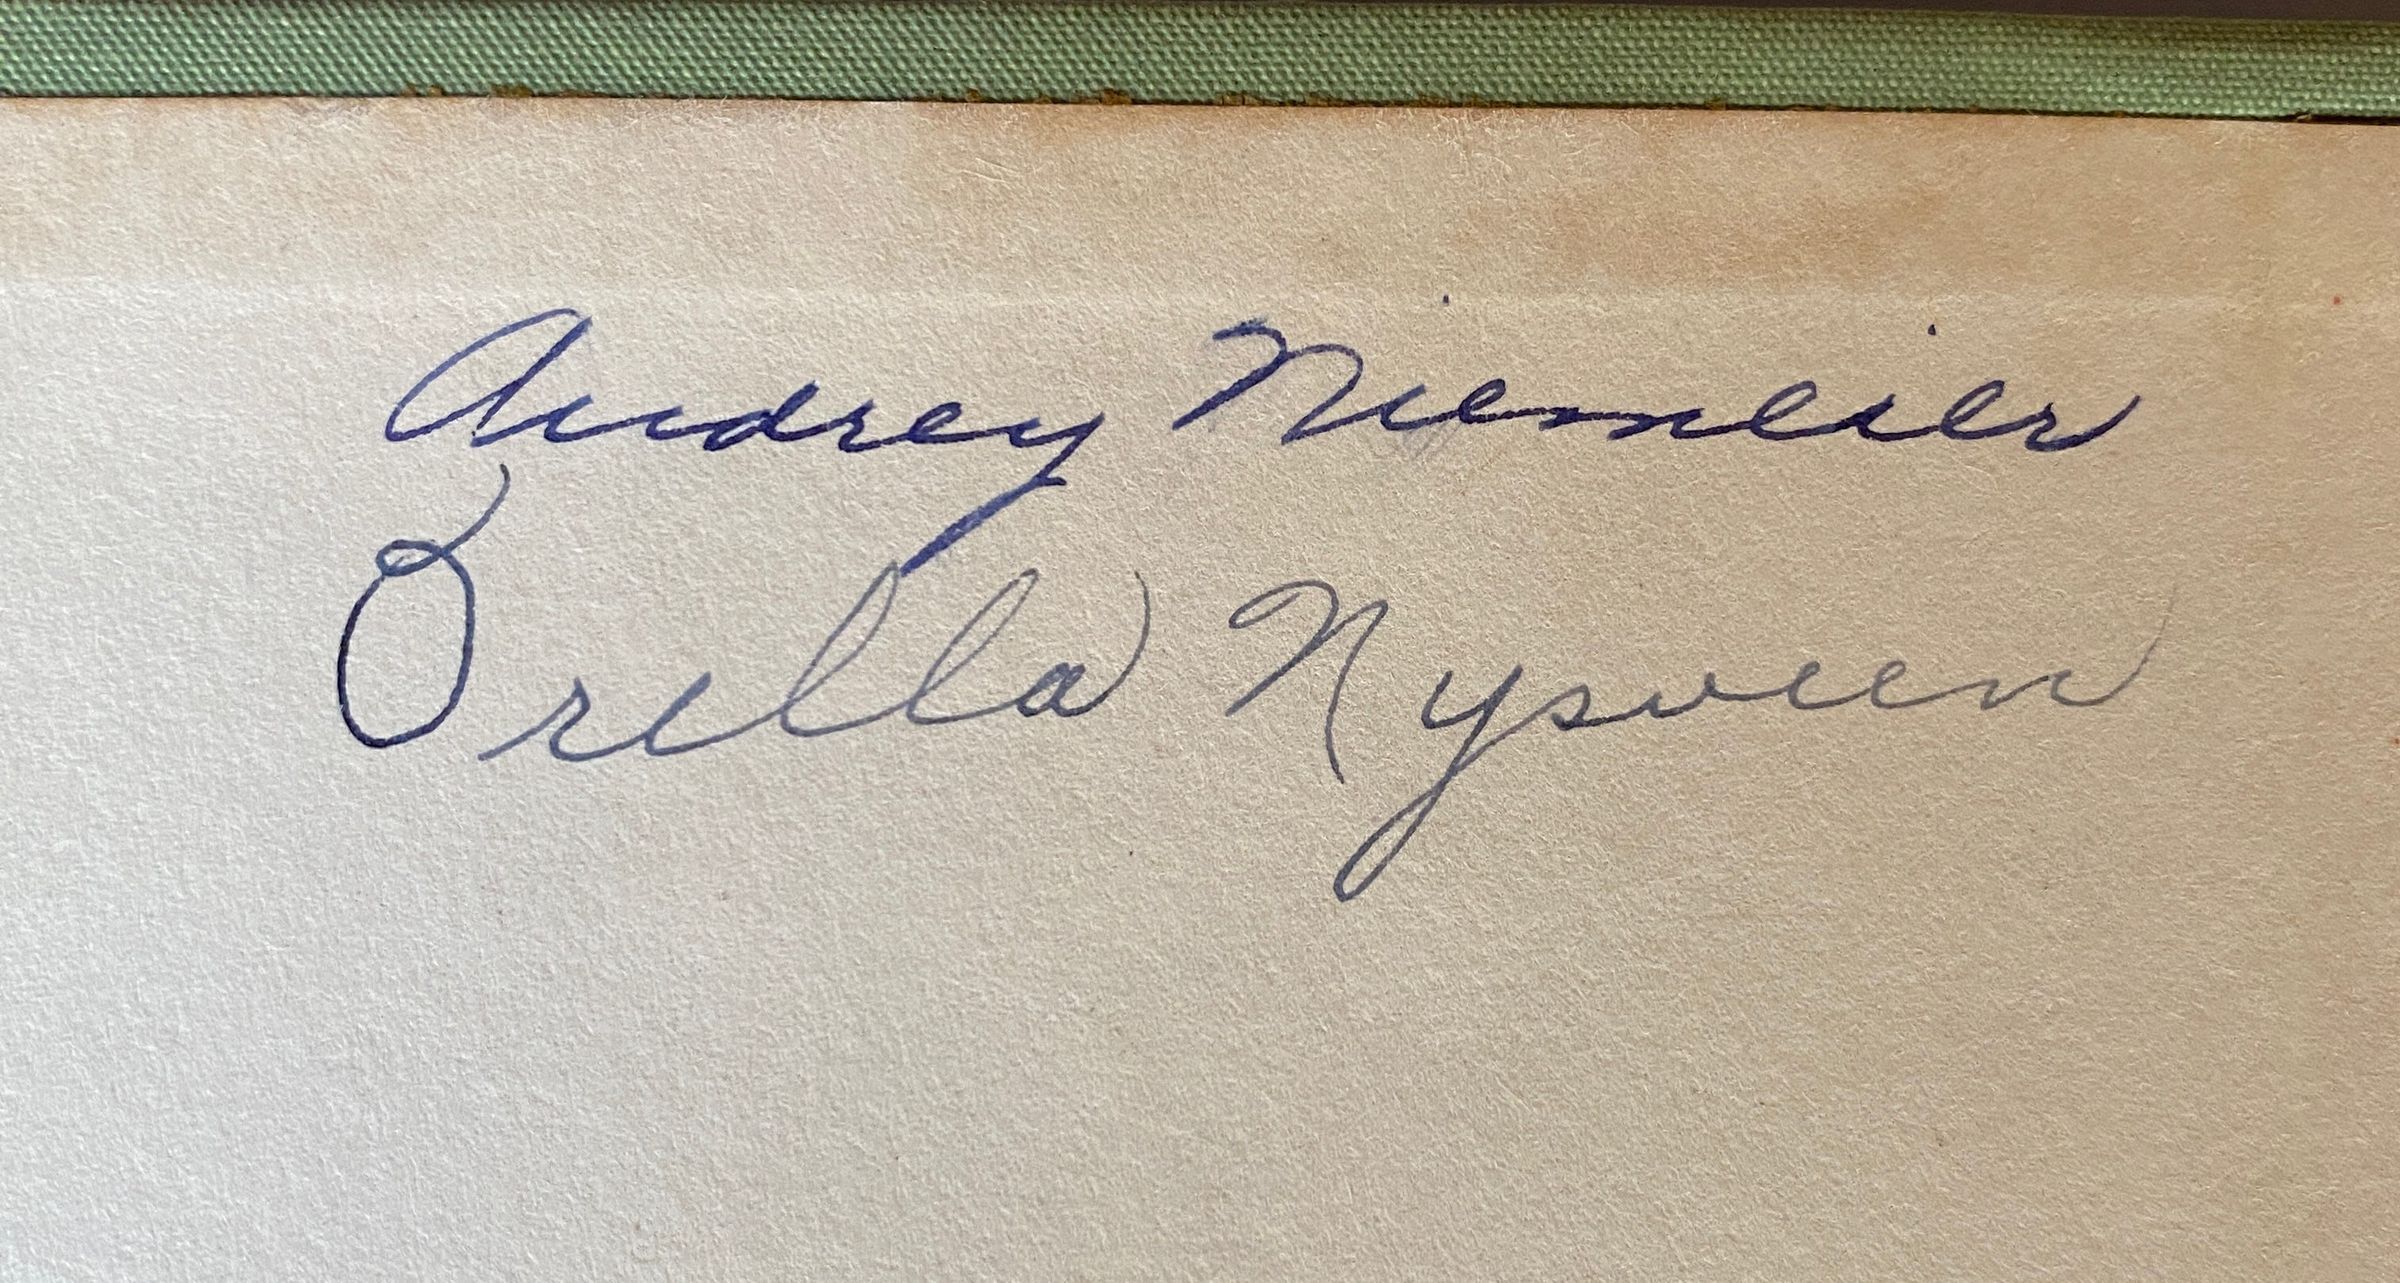 Audrey Niemeier
Orella Nysveen